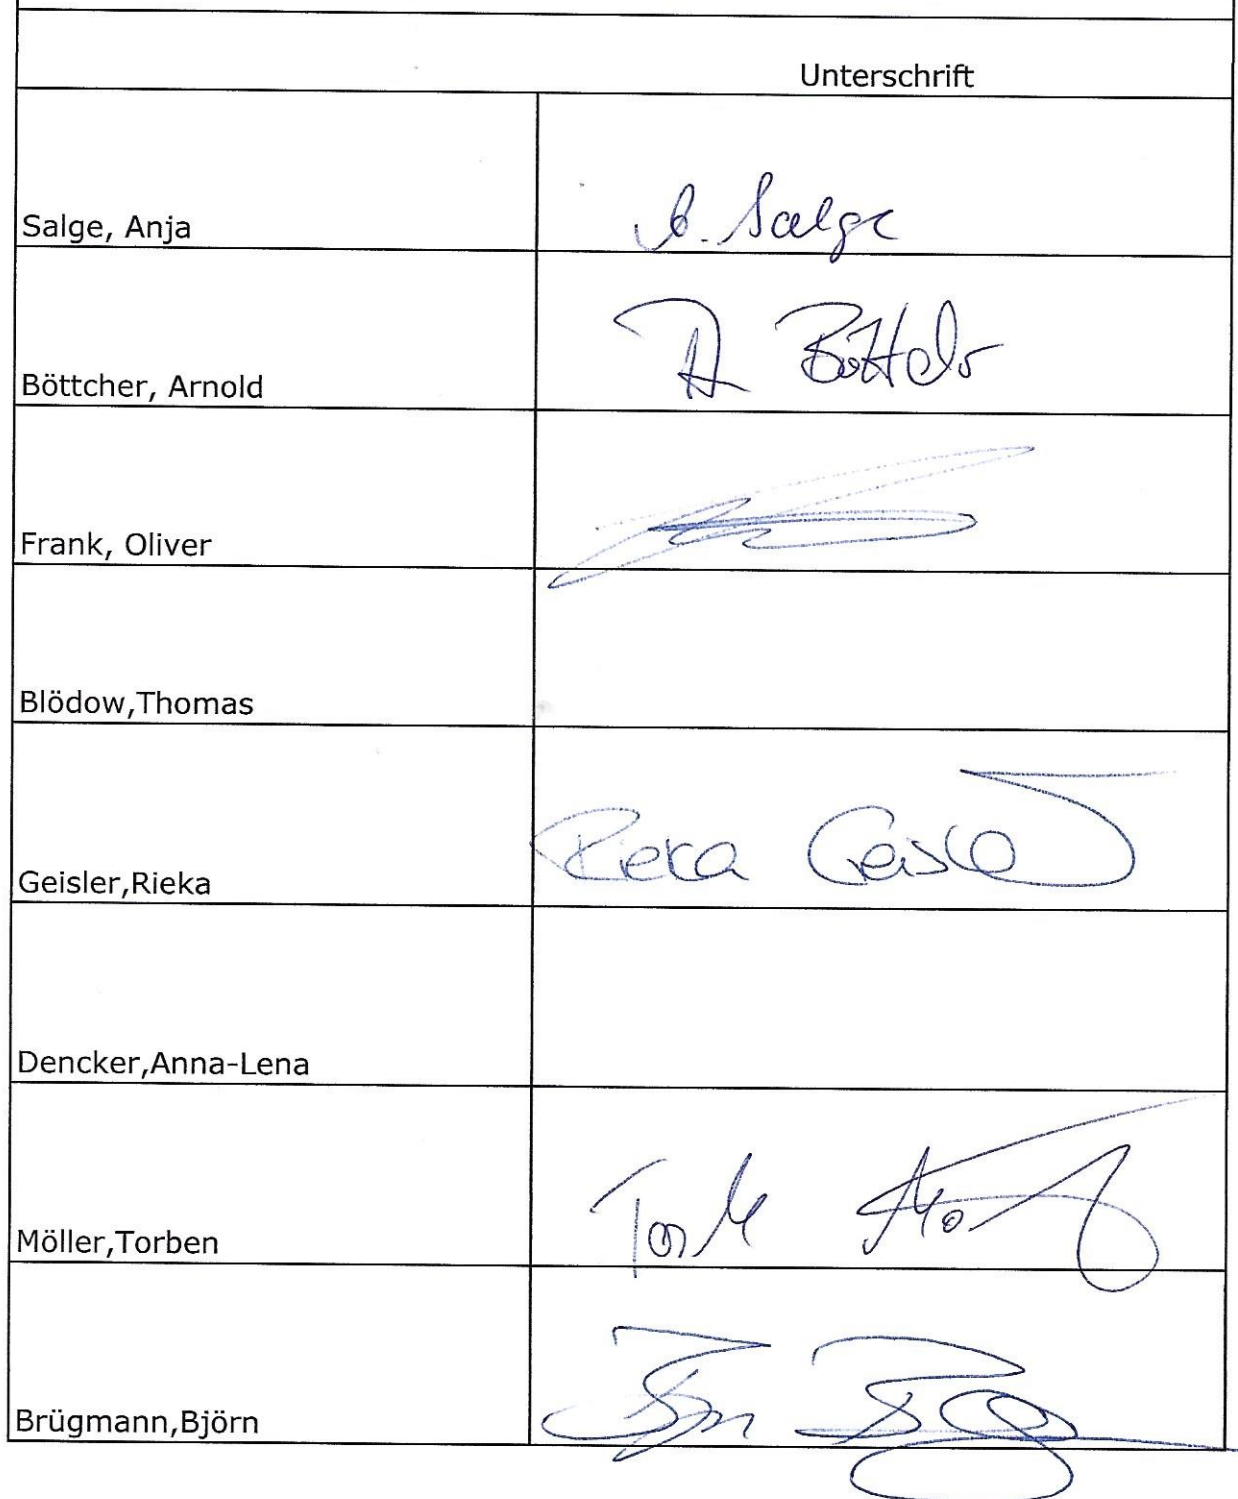 Unterschrift
Salge, Anja
A. Salge
Böttcher, Arnold
A Böttcher
Frank, Oliver
Blödow,Thomas
Geisler,Rieka
Rieka Geisler
Dencker,Anna-Lena
Möller,Torben
Brügmann,Björn